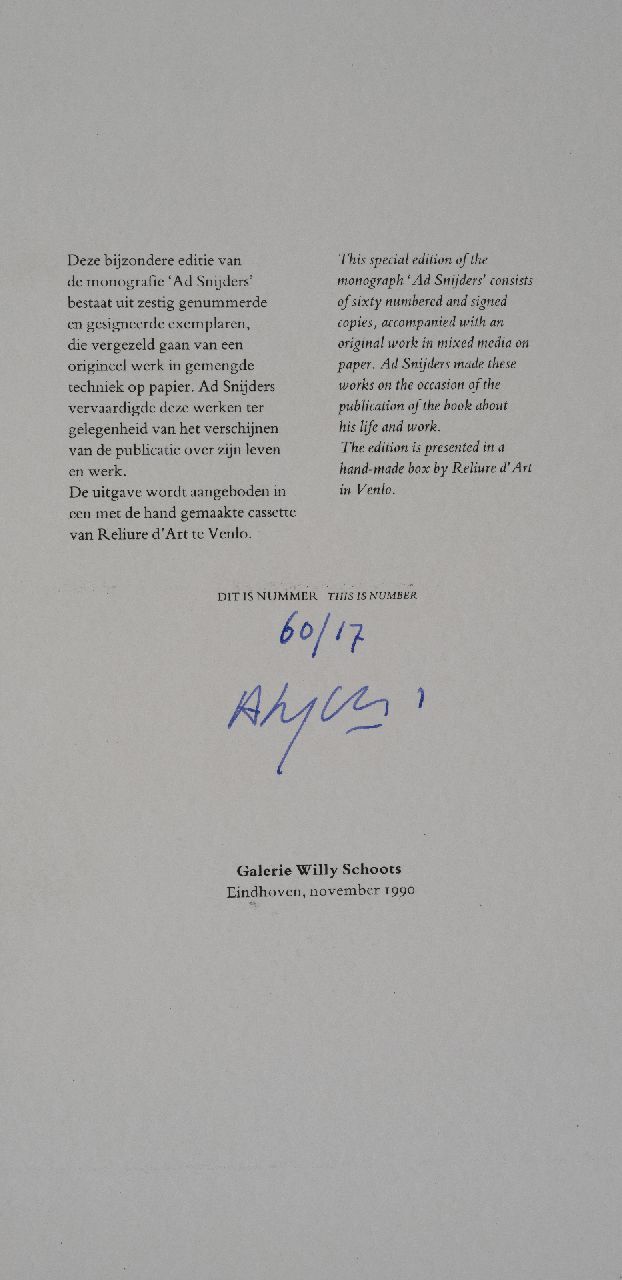 Deze bijzondere editie van
de monografie ‘Ad Snijders’
bestaat uit zestig genummerde
en gesigneerde exemplaren,
die vergezeld gaan van een
origineel werk in gemengde
techniek op papier. Ad Snijders
vervaardigde deze werken ter
gelegenheid van het verschijnen
van de publicatie over zijn leven
en werk.
De uitgave wordt aangeboden in
een met de hand gemaakte cassette
van Reliure d’Art te Venlo.
This special edition of the
monograph ‘Ad Snijders’ consists
of sixty numbered and signed
copies, accompanied with an
original work in mixed media on
paper. Ad Snijders made these
works on the occasion of the
publication of the book about
his life and work.
The edition is presented in a
hand-made box by Reliure d’Art
in Venlo.
DIT IS NUMMER THIS IS NUMBER
60/17
Galerie Willy Schoots
Eindhoven, november 1990